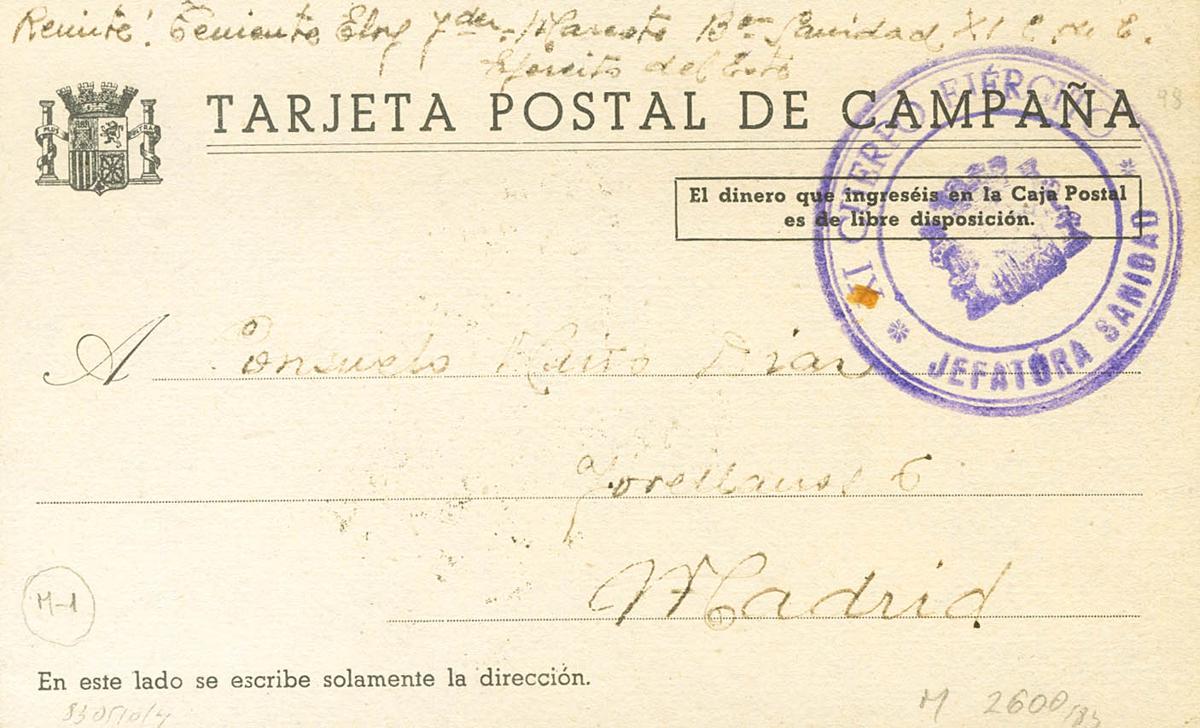 Remite: Teniente Eloy Maroto Bon Sanidad XI C. de E.
Ejercito del Este
TARJETA POSTAL DE CAMPAÑA
98
El dinero que ingreséis en la Caja Postal
es de libre disposición.
XI CUERPO EJÉRCITO
JEFATURA SANIDAD
A Consuelo Diaz
6
Madrid
M-1
En este lado se escribe solamente la dirección.
M 2600